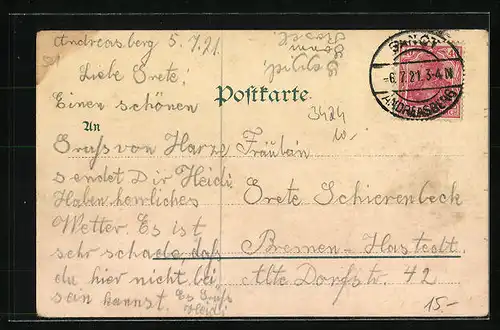 Andreasberg 5.7.21.
Liebe Grete!
Einen schönen
Gruss von Harze
sendet Dir Heidi.
Haben herrliches
Wetter. Es ist
sehr schade, daß
du hier nicht bei
sein kannst. Es Grüßt
Heidi
Postkarte.
An
3424
Fräulein
Grete Schierenbeck
Bremen-Hastedt
Alte Dorfstr. 42
SANCT
-6.7.21.3-4N
(ANDREASBERG)
15.-